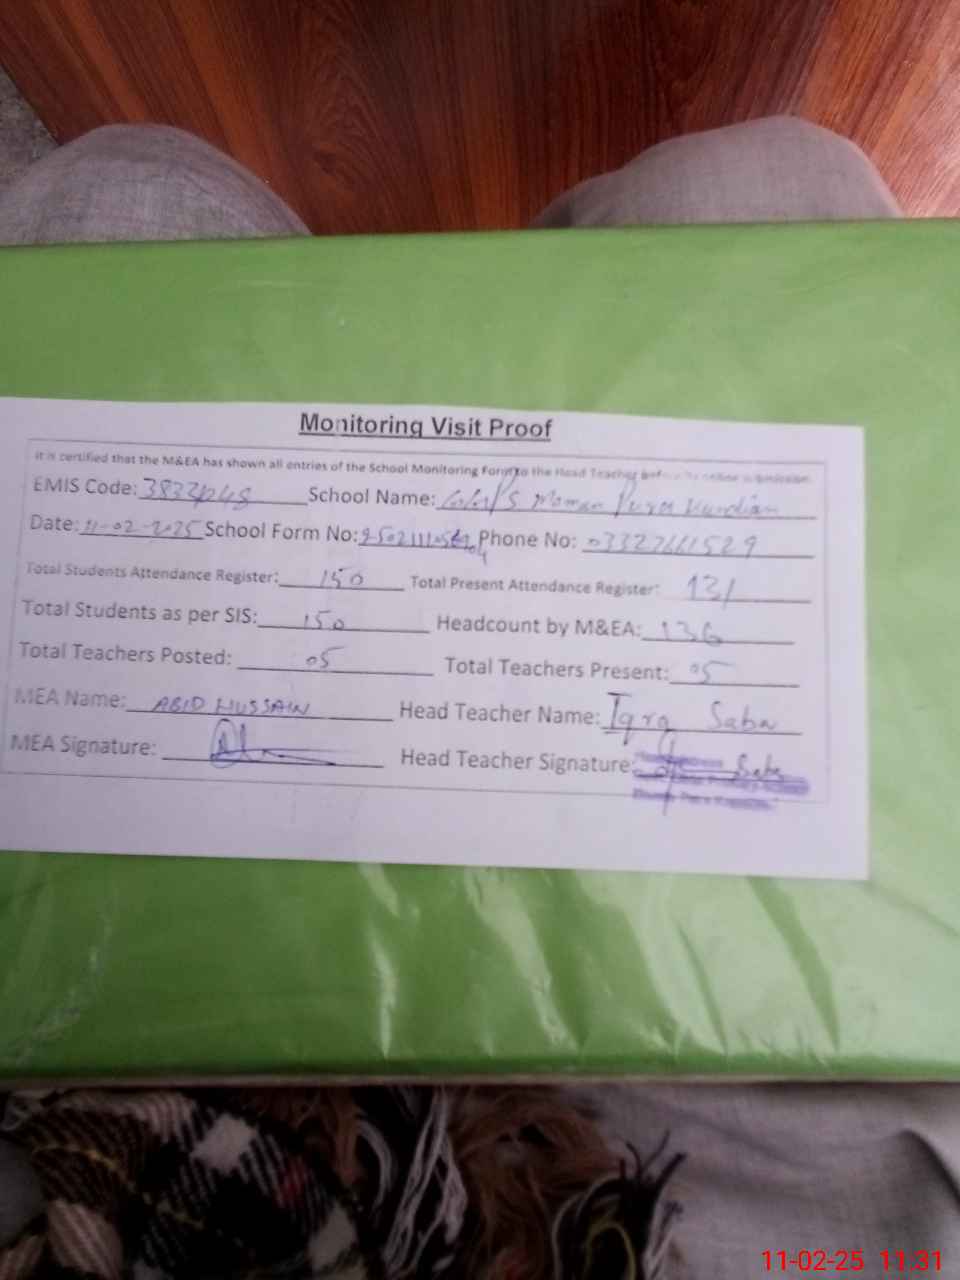 Monitoring Visit Proof
It is certified that the M&EA has shown all entries of the School Monitoring Form to the Head Teacher before its online submission.
EMIS Code: School Name: Moman Pura Kurdian
Date: 11-02-2025 School Form No: Phone No: 03327661529
Total Students Attendance Register: 150 Total Present Attendance Register: 131
Total Students as per SIS: 150 Headcount by M&EA: 136
Total Teachers Posted: 05 Total Teachers Present: 05
MEA Name: ABID HUSSAIN Head Teacher Name: Iqra Saba
MEA Signature: Head Teacher Signature: Saba
11-02-25 11:31